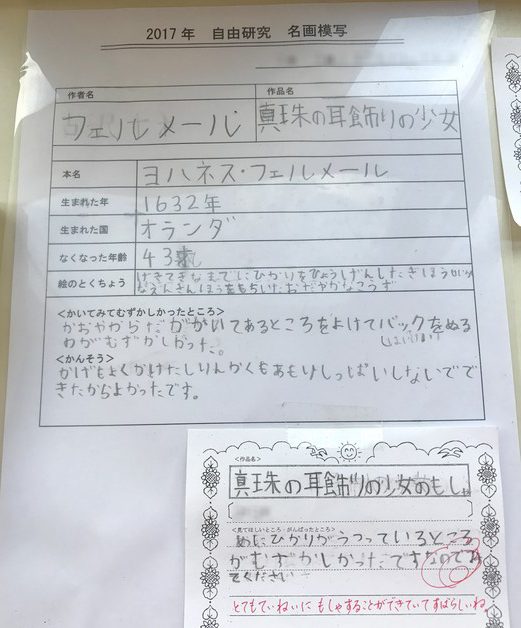 2017年 自由研究 名画模写
作者名 作品名
フェルメール 真珠の耳飾りの少女
本名 ヨハネス・フェルメール
生まれた年 1632年
生まれた国 オランダ
なくなった年齢 43
絵のとくちょう げきてきなまでにひかりをひょうげんしたぎほう
なえんきんほうをもちいたおだやかなこうず
<かいてみてむずかしかったところ>
かおやからだががかいてあるところをよけてバックをぬる
のがむずかしかった。
<かんそう>
かげもよくかけたしりんかくもあまりしっぱいしないでで
きたからよかったです。
<作品名>
真珠の耳飾りの少女のもしゃ
<見てほしいところ・がんばったところ>
めにひかりがうつっているところ
がむずかしかったですなのでみ
てください
とてもていねいにもしゃすることができていてすばらしいね